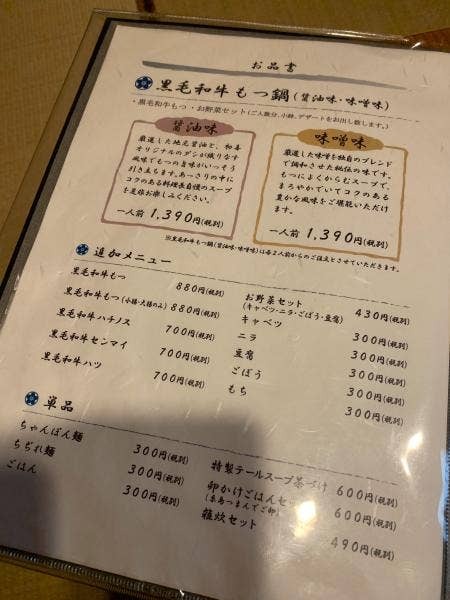 お品書
黒毛和牛もつ鍋(醤油味・味噌味)
・黒毛和牛もつ・お野菜セット(ご人数分、小鉢、デザートをお出し致します。)
醤油味
厳選した地元醤油と、和喜
オリジナルのダシが織りなす
風味でもつの旨味がいっそう
引き立ちます。あっさりの中に
コクのある料理長自慢のスープ
を是非お楽しみください。
一人前 1,390円(税別)
味噌味
厳選した味噌を独自のブレンド
で調和させた秘伝の味です。
もつによくからむスープで、
まろやかでいてコクのある
豊かな風味をご堪能いただけ
ます。
一人前 1,390円(税別)
※黒毛和牛もつ鍋(醤油味・味噌味)は各2人前からのご注文とさせていただきます。
追加メニュー
黒毛和牛もつ 880円(税別)
黒毛和牛もつ(小腸・大腸のみ) 880円(税別)
黒毛和牛ハチノス 700円(税別)
黒毛和牛センマイ 700円(税別)
黒毛和牛ハツ 700円(税別)
お野菜セット 430円(税別)
(キャベツ・ニラ・ごぼう・豆腐)
キャベツ 300円(税別)
ニラ 300円(税別)
豆腐 300円(税別)
ごぼう 300円(税別)
もち 300円(税別)
単品
ちゃんぽん麺 300円(税別)
ちぢれ麺 300円(税別)
ごはん 300円(税別)
特製テールスープ茶づけ 600円(税別)
卵かけごはんセット 600円(税別)
(糸島つまんでご卵)
雑炊セット 490円(税別)